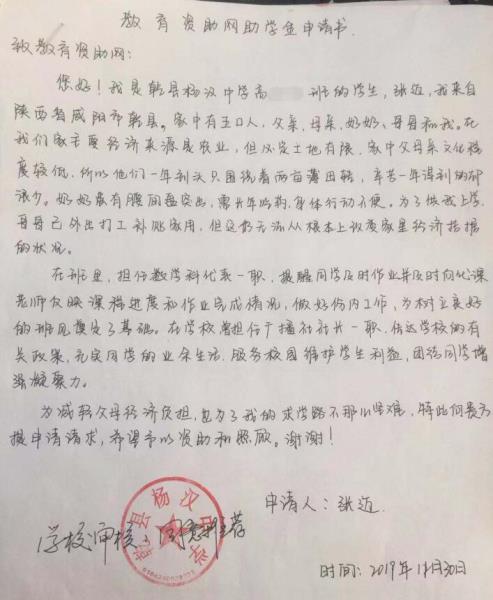 教育资助网助学金申请书
致教育资助网：
您好！我是乾县杨汉中学高 班的学生，张迈，我来自
陕西省咸阳市乾县。家中有五口人，父亲、母亲、奶奶、哥哥和我。在
我们家主要经济来源是农业，但必定土地有限，家中父母亲文化程
度较低，所以他们一年到头只围绕着两亩薄田转，辛苦一年得到的却
很少。奶奶患有腰间盘突出，需长年吃药，身体行动不便。为了供我上学，
哥哥已外出打工补贴家用，但这仍无法从根本上改变家里经济拮据
的状况。
在班里，担任数学科代表一职，提醒同学及时作业并及时向代课
老师反映课程进度和作业完成情况，做好份内工作，为树立良好
的班风奠定了基础。在学校曾担任广播社社长一职，传达学校的有
关政策，充实同学的业余生活，服务校园维护学生利益，团结同学增
强凝聚力。
为减轻父母经济负担，也为了我的求学路不那么坚难，特此向贵方
提申请请求，希望予以资助和照顾。谢谢！
学校审核： 荐
乾县杨汉中学
申请人：张迈
时间：2019年 月30日